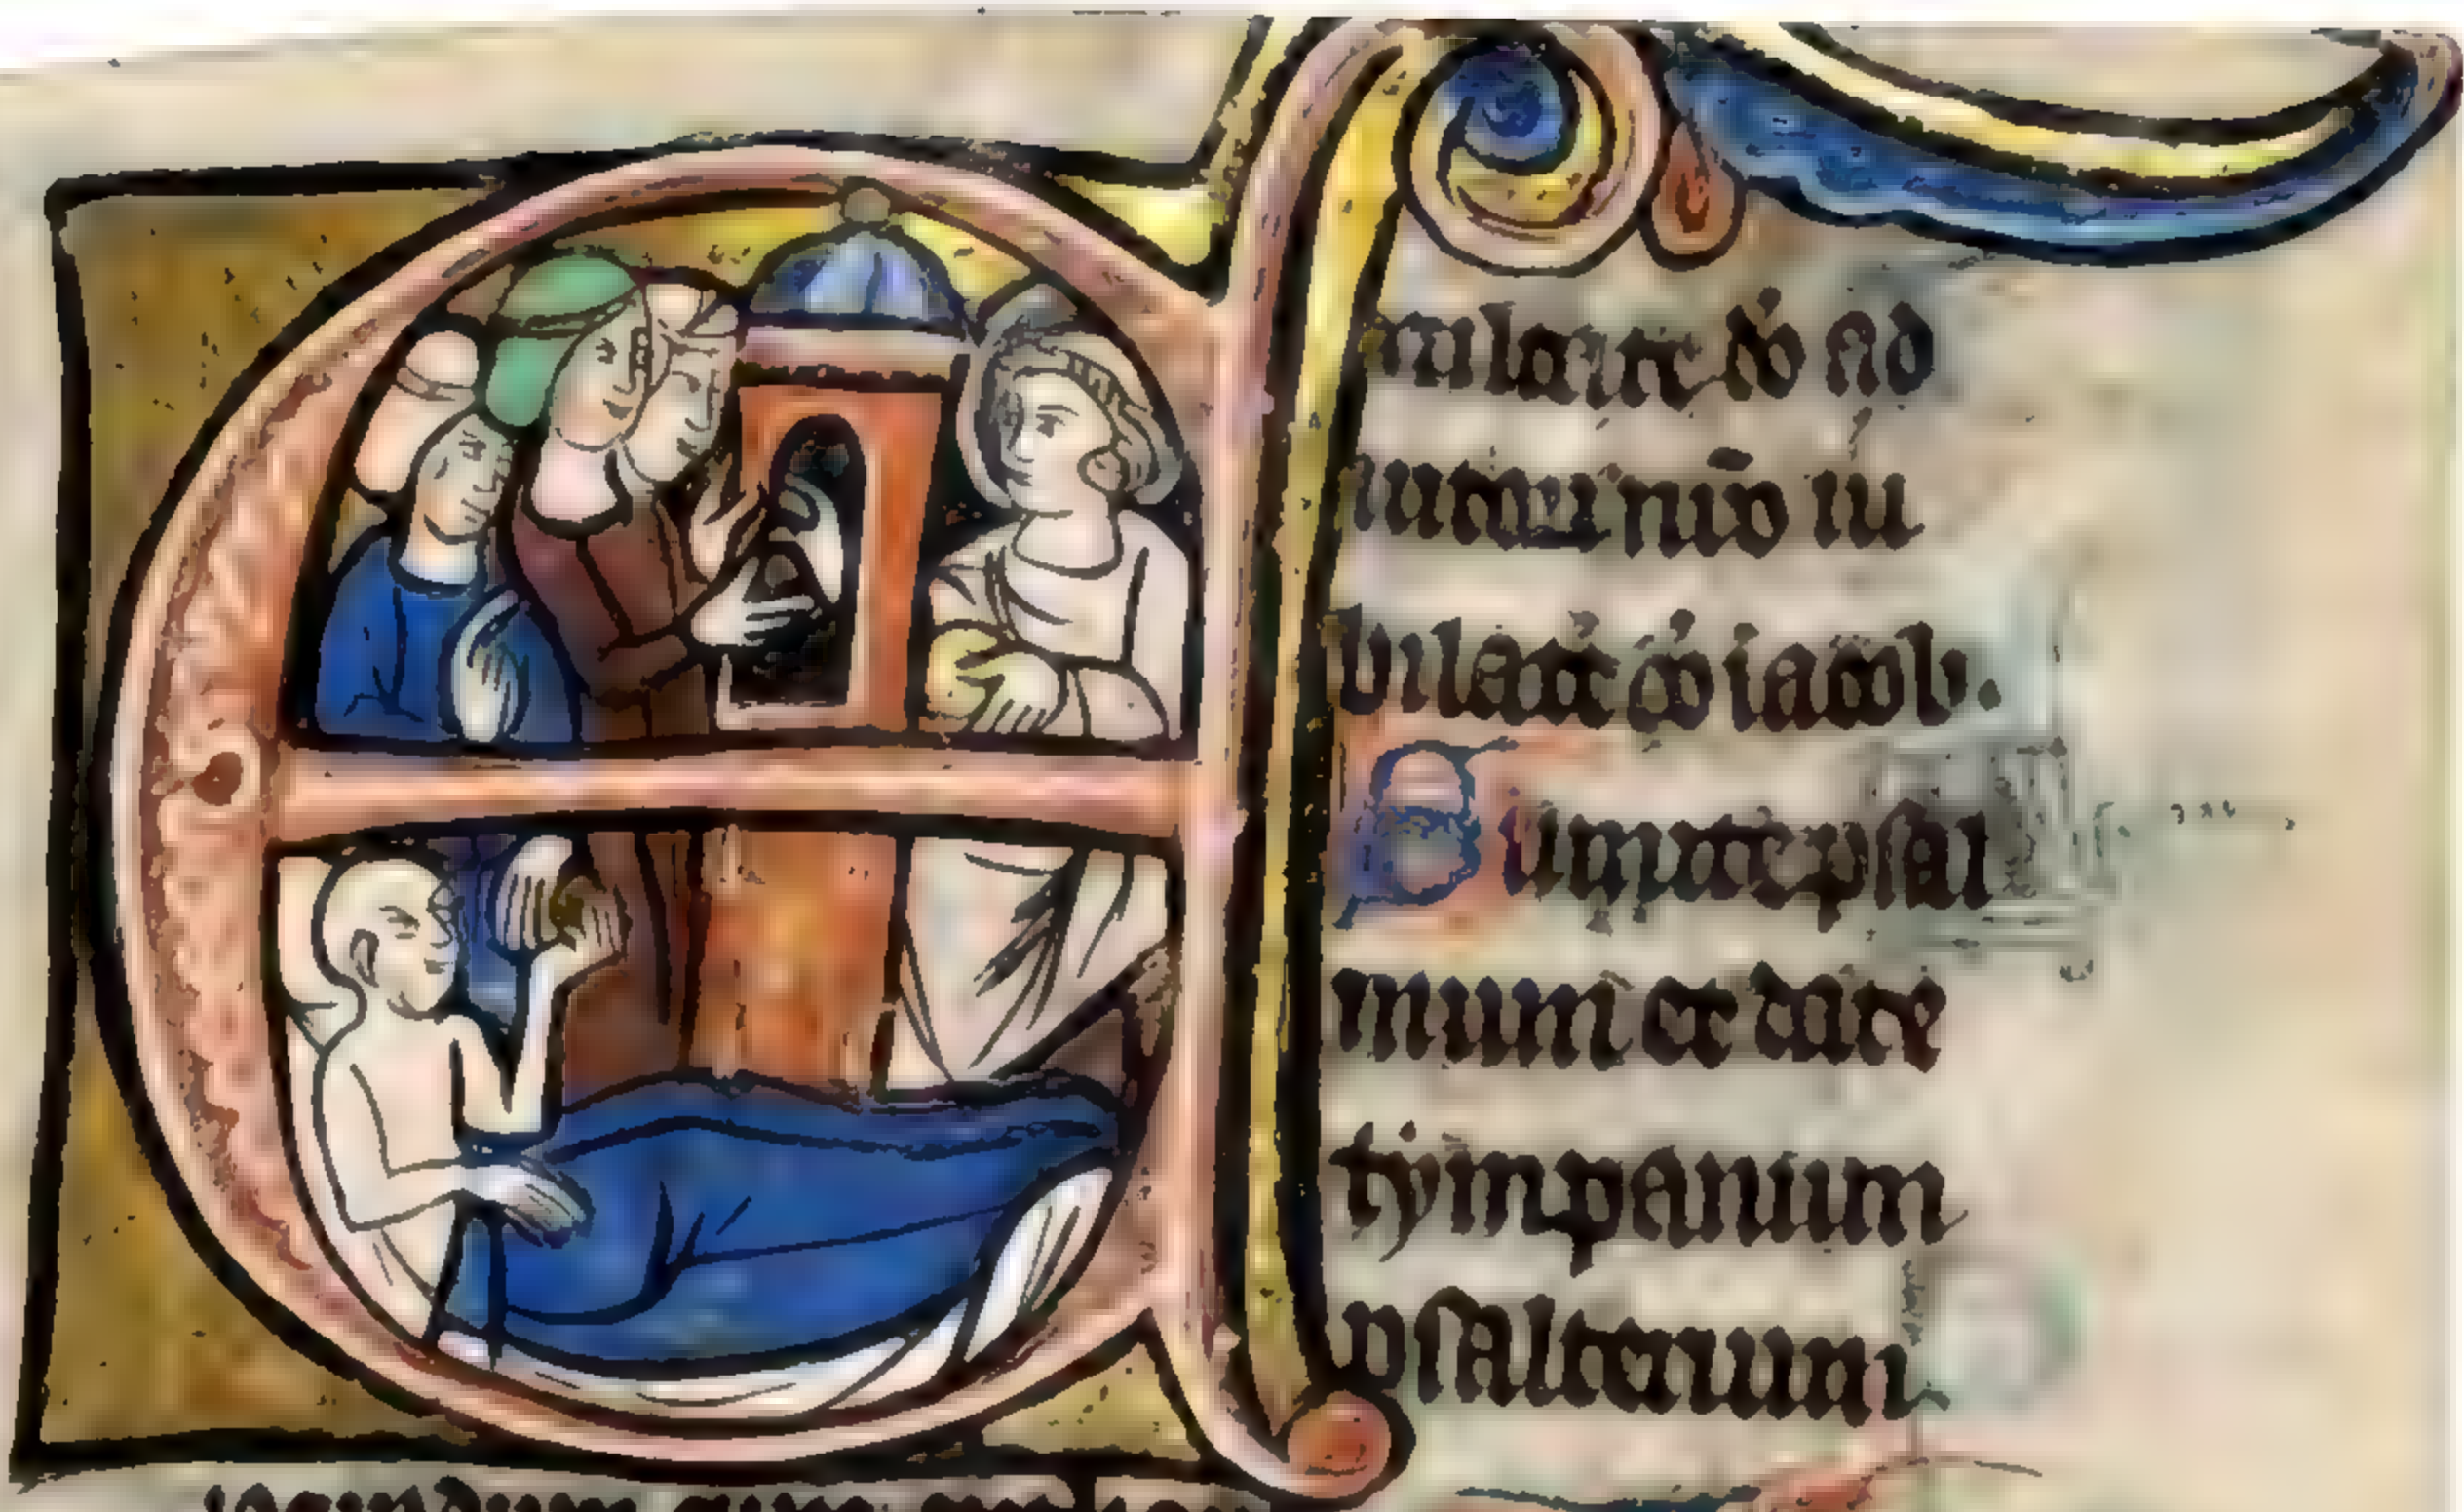 Exultate dō ad
iutori nrō iu
bilate dō iacob.
Sumite psal
mum et date
tẏmpanum
psalterium
iocundum cum